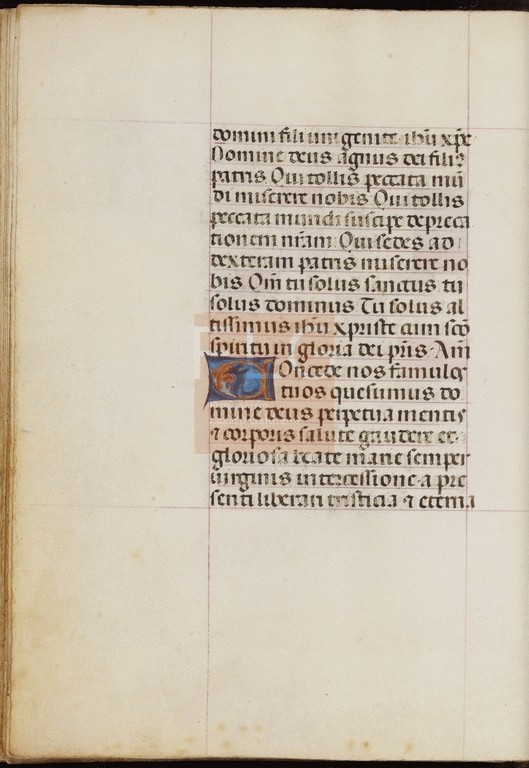 domini fili unigenite ihu xpe
Domine deus agnus dei fili9
patris Qui tollis peccata mu̅
di miserere nobis Qui tollis
peccata mundi suscipe depreca
tionem nr̅am Qui sedes ad
dexteram patris miserere no
bis Qm̅ tu solus sanctus tu
solus dominus Tu solus al
tissimus ihu̅ xpriste cum sc̅o
spiritu in gloria dei pr̅is Am̅
COncede nos famulos
tuos quesumus do
mine deus perpetua mentis
⁊ corporis salute gaudere et
gloriosa beate marie semper
virginis intercessione a pre
senti liberari tristicia ⁊ eterna